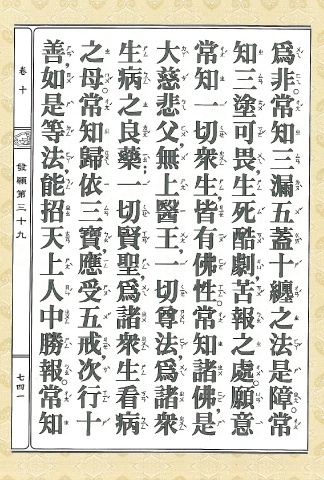 為非。常知三漏五蓋十纏之法是障。常
知三塗可畏。生死酷劇苦報之處。願意
常知一切眾生皆有佛性。常知諸佛是
大慈悲父。無上醫王。一切尊法為諸眾
生病之良藥。一切賢聖。為諸眾生看病
之母。常知歸依三寶。應受五戒。次行十
善。如是等法。能招天上人中勝報。常知
卷十
發願第三十九
七四一